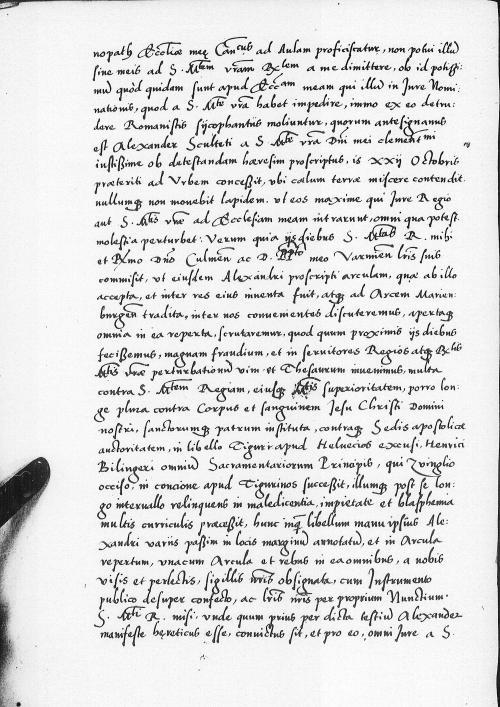 nopatus Eccl̄iae meę Cantus ad Aulam proficiscatur, non potui illū
sine meis ad S. Mtem vram Rxlem a me dimittere, ob id potissi:
mū quòd quidem sunt apud Eccl̄am meam qui illū in Jure Nomi:
nationis, quod a S. Mte vra habet impedire, immo ex eo detru:
dere Romanistis sycophantiis moliuntur, quorum antesignanus
est Alexander Sculteti a S. Mte vra Dnī mei clementmi
iustissime ob detestandam haeresim proscriptus, is XXIJ Octobris
praeteriti ad Urbem concessit, ubi cœlum terrae miscere contendit
nullumq; non movebit lapidem, ut eos maxime qui Jure Regio
aut S. Mtis vrae ad Ecclesiam meam intrarunt, omni qua potest
molestia perturbet. Verum quia ijs diebus S. Mtas R. mihi
et Rxmo Dno Culmen̄ ac D. meo Varmien̄ lris suis
commisit, ut eiusdem Alexandri proscripti arculam, quae ab illo
accepta, et inter res eius inventa fuit, atq; ad Arcem Marien:
burgen̄ tradita, inter nos convenientes discuteremus, apertaq;
omnia in ea reperta, scrutaremur, quod quum proximis ijs diebus
fecissemus, magnam fraudium, et in servitores Regios atq; Rxlis
Mtis vrae perturbationū vim et Thesaurum invenimus, multa
contra S. Mtem Regiam, eiusq; Mtis superioritatem, porro lon:
ge plura contra Corpus et sanguinem Jesu Christi Domini
nostri, sanctorumq; patrum instituta, contraq; Sedis apostolicae
auctoritatem, in libello Tiguri apud Helvecios excusi, Henrici
Bilingeri omniū Sacramentariorum Principis, qui Zvinglio
occiso, in concione apud Tigurinos successit, illumq; post se lon:
go intervallo relinquens in maledicentia, impietate et blasphemia
multis curriculis praecessit, hunc inq̄ libellum manu ipsius Ale:
xandri variis passim in locis marginū annotatū, et in Arcula
repertum, unacum Arcula et rebus in ea omnibus, a nobis
visis et perlectis, sigillis nris obsignata, cum Instrumento
publico desuper confecto, ac lris nris per proprium Nunctium
S. Mti R. misi, unde quum prius per dicta testiū Alexander
manifeste hęreticus esse, convictus sit, et pro eo, omni Jure a S.